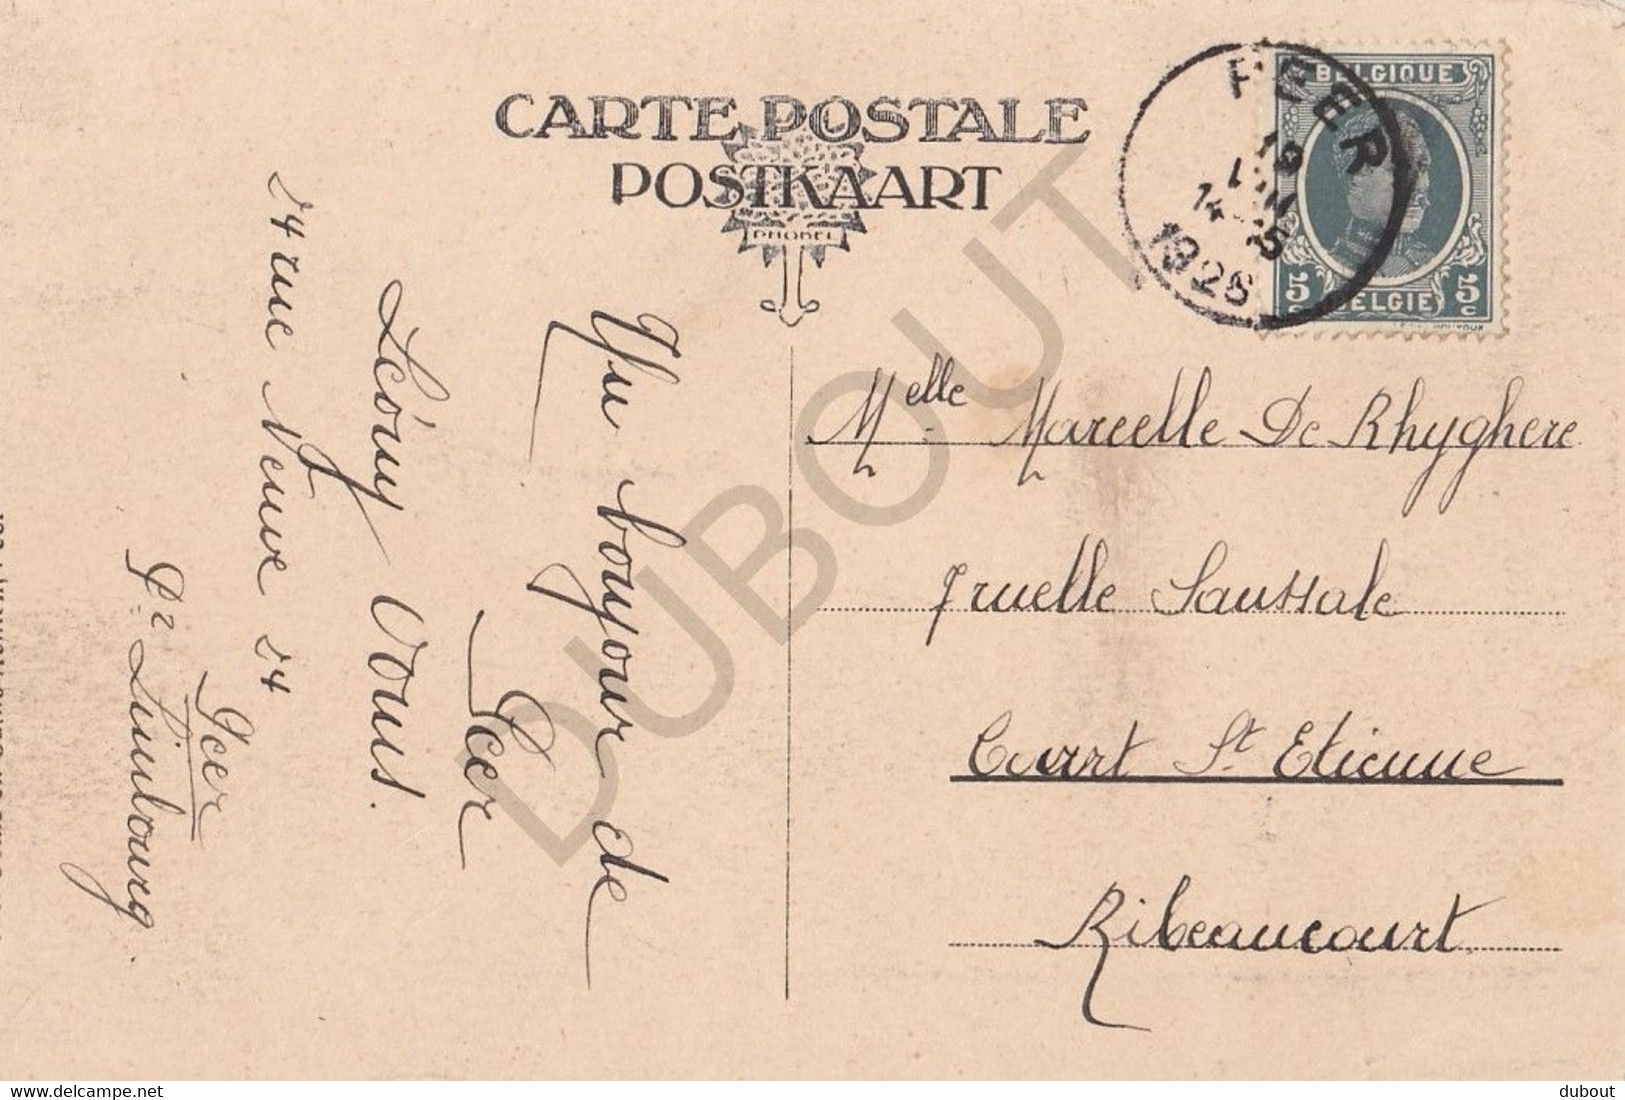 CARTE POSTALE
POSTKAART
PHOBEL
PEER
14
1926
BELGIQUE
5c 5c
BELGIE
Un bonjour de
Peer
Léony Vous.
54 rue Neuve 54
Peer
Pce Limbourg.
Melle Marcelle De Rhyghere
Truelle Saussale
Court St Etienne
Ribeaucourt
DUBOUT
delcampe.net
dubout